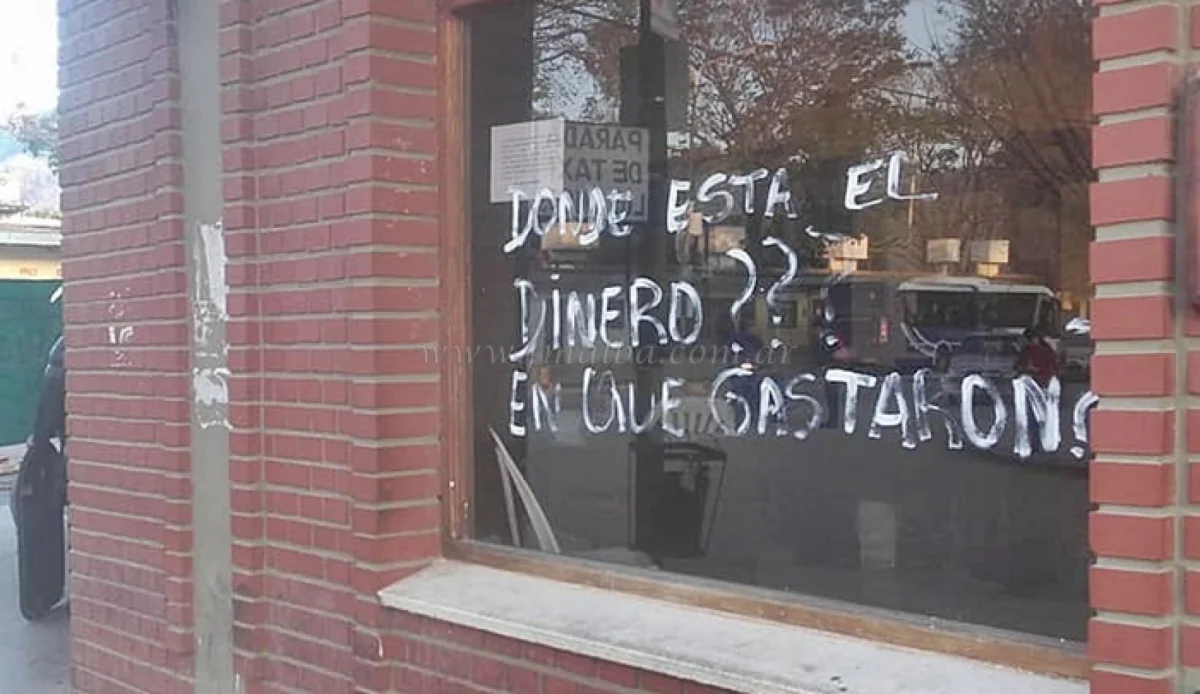 PARAD
DE TAX
DONDE ESTA EL
DINERO ???
EN QUE GASTARON?
www.fmalba.com.ar